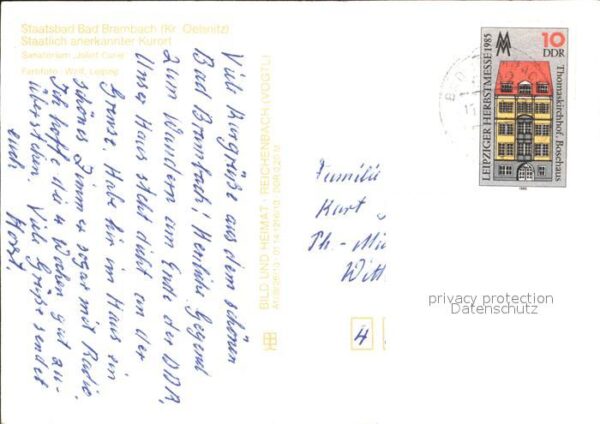 Staatsbad Bad Brambach (Kr. Oelsnitz)
Staatlich anerkannter Kurort
Sanatorium „Joliot-Curie“
Farbfoto: Wolf, Leipzig
Viele Kurgrüße aus dem schönen
Bad Brambach! Herrliche Gegend
zum Wandern am Ende der DDR,
Unser Haus steht dicht an der
Grenze. Habe hir im Haus ein
schönes Zimmer sogar mit Radio.
Ich hoffe die 4 Wochen gut zu
überstehen. Viele Grüße sendet
euch Horst.
BILD UND HEIMAT · REICHENBACH (VOGTL)
Familie
Kurt
Th.-Mü
Witt
4
LEIPZIGER HERBSTMESSE 1985
10
DDR
Thomaskirchhof, Bosehaus
1985
privacy protection
Datenschutz